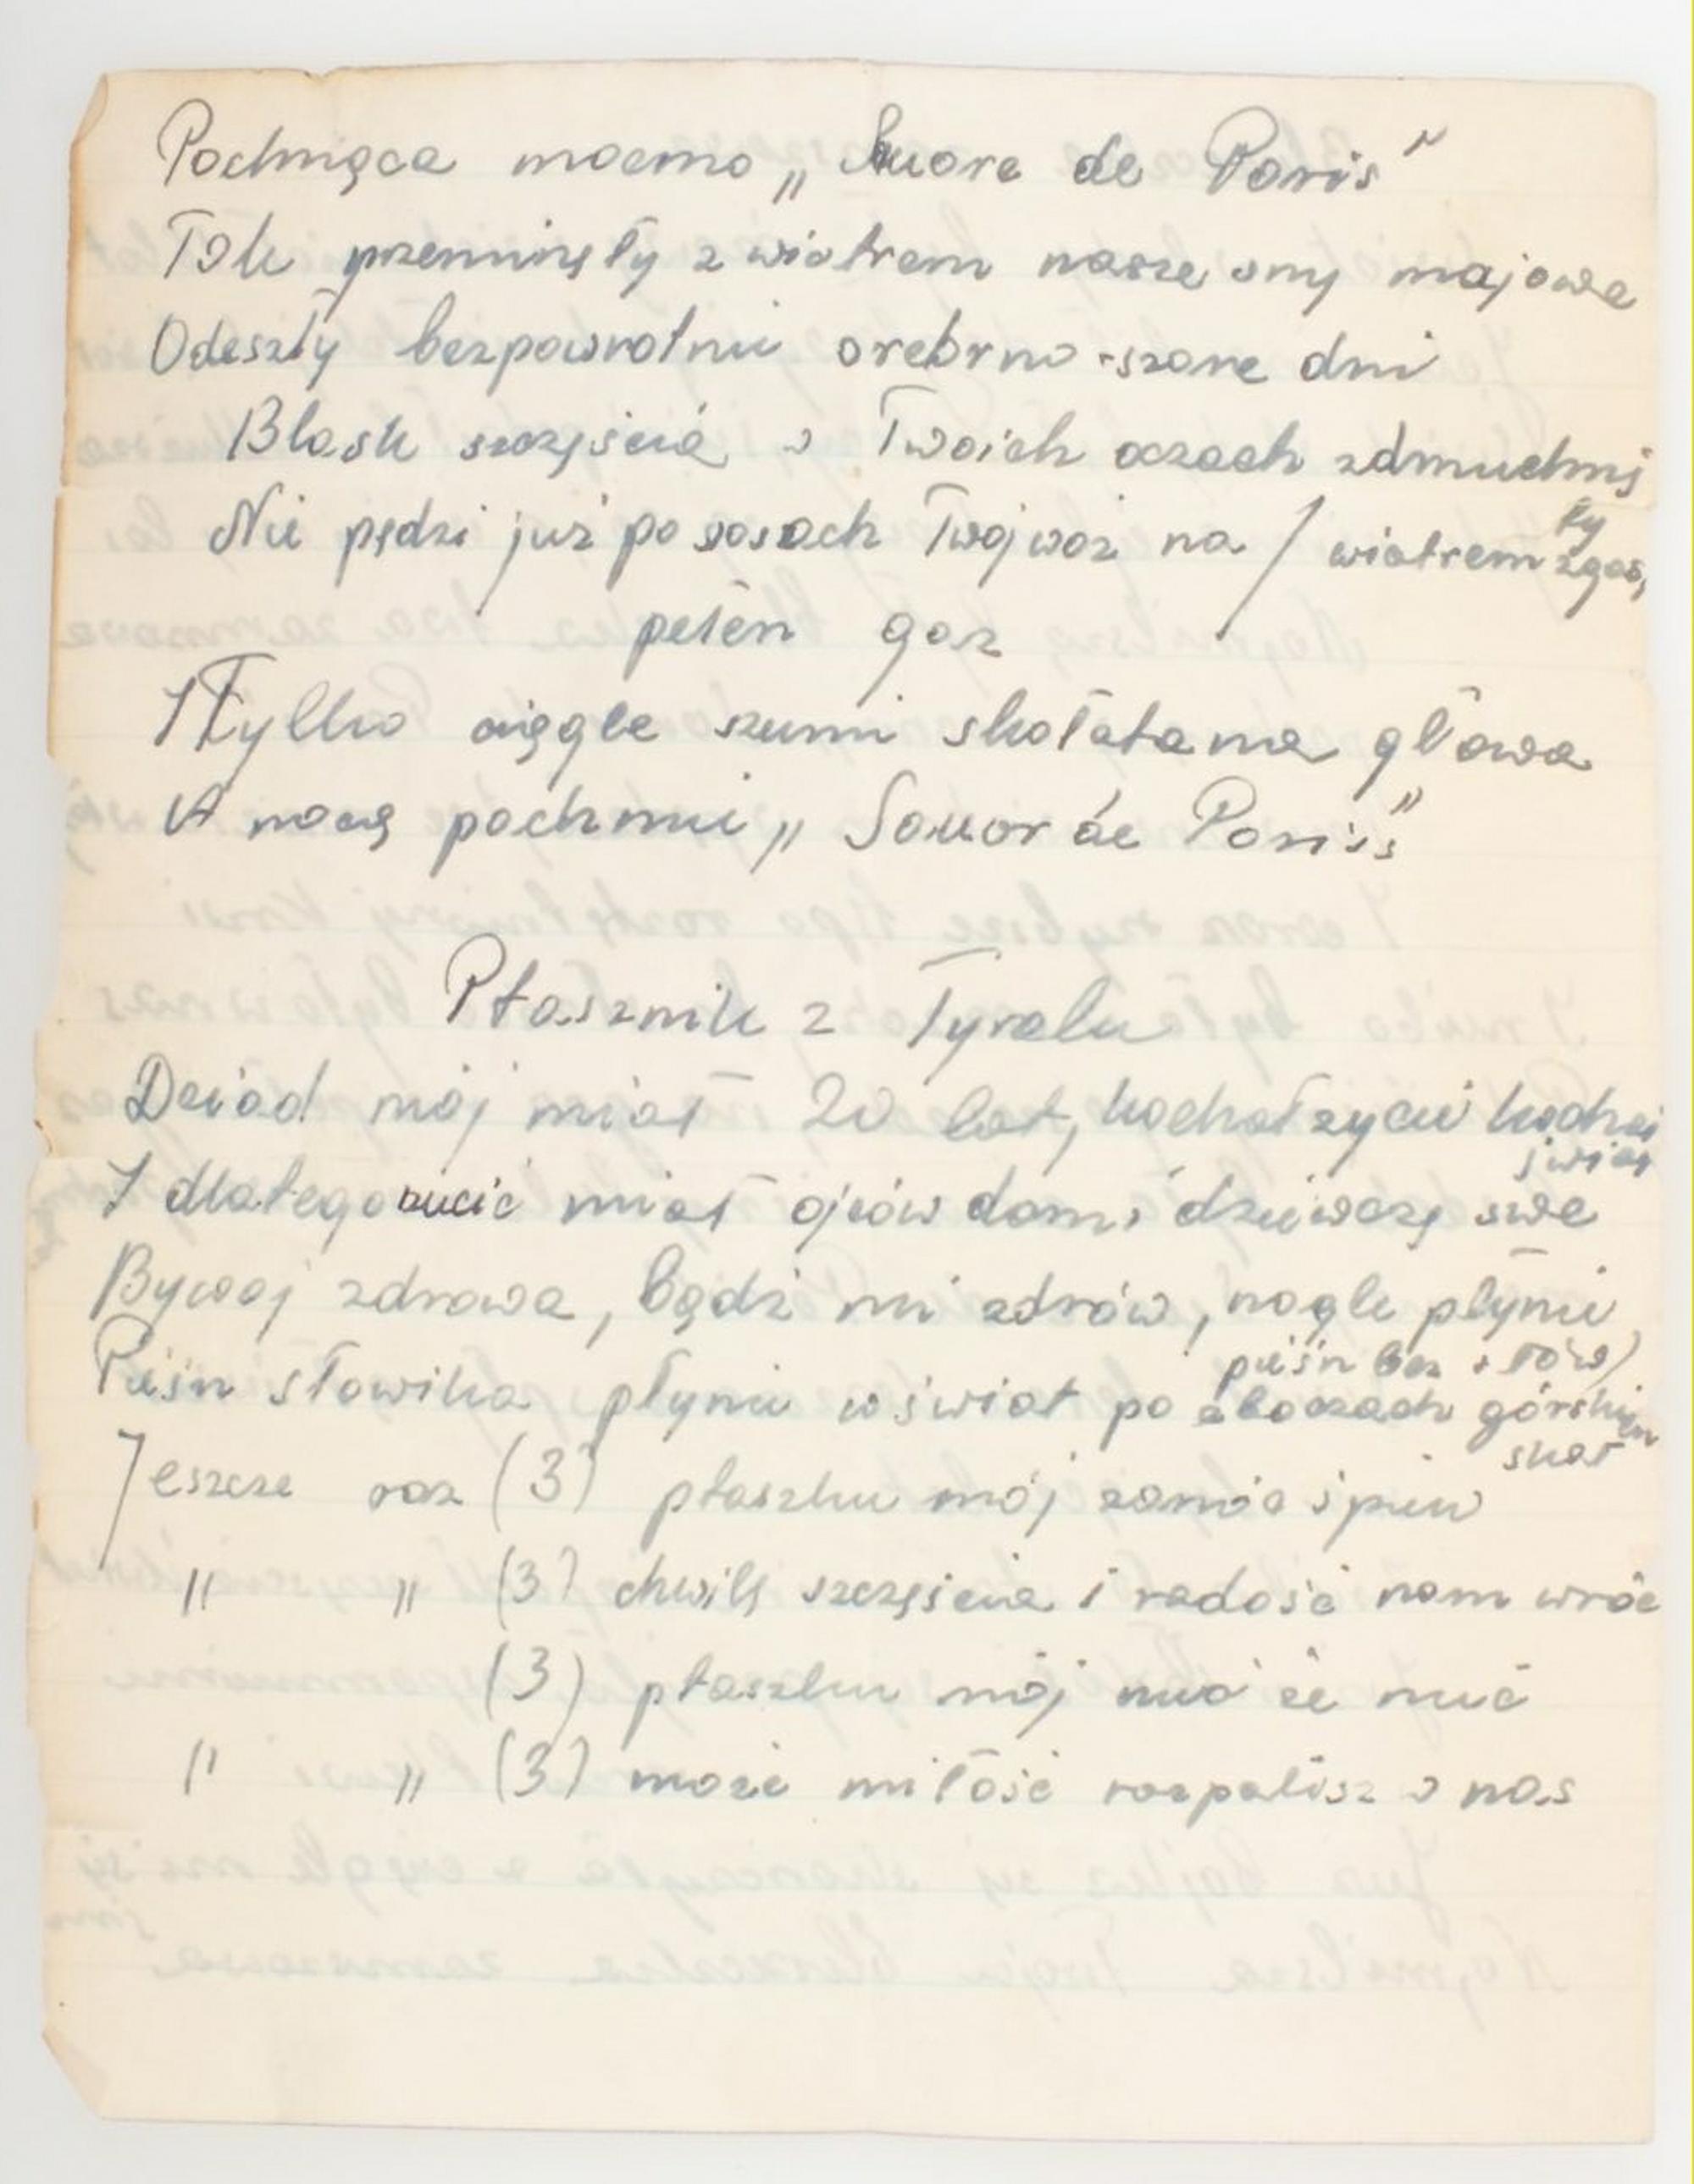 Pachnąca mocno „Suore de Paris”
Tak przeminęły z wiatrem nasze sny majowe
Odeszły bezpowrotnie srebrno-szare dni
Blask szczęścia w Twoich oczach zdmuchnę
ły
Nie pędzi już po szosach Twój wóz na / wiatrem zgas,
pełen gaz
I Tylko ciągle szumi skołatana głowa
A nocą pachnie „Souor de Pariss”
Ptasznik z Tyrolu
Dziad mój miał 20 lat, kochał życie kochał
świat
I dlatego rzucić miał ojców dom i dziewczę swe
Bywaj zdrowa, bądź mi zdrów, nagle płynie
pieśń bez słów)
Pieśń słowika płynie w świat po zboczach górskich
skał
Jeszcze raz (3) ptaszku mój zanuć śpiew
" " (3) chwilę szczęścia i radość nam wróć
(3) ptaszku mój nuć że nuć
" " (3) może miłość rozpalisz w nas